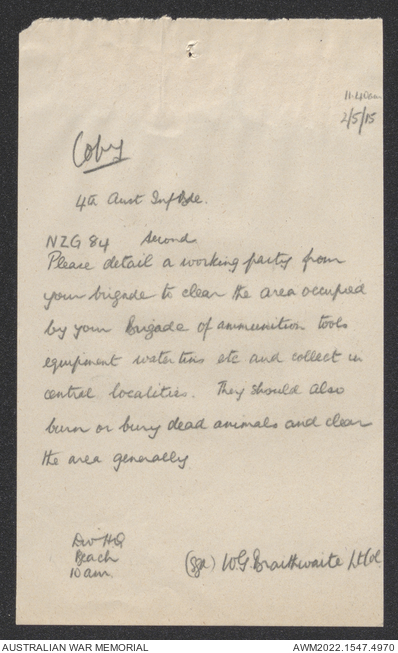 11.40am
2/5/15
Coby
4th Aust Inf Bde.
NZG 84 Second
Please detail a working party from
your brigade to clear the area occupied
by your Brigade of ammunition tools
equipment water tins etc and collect in
central localities. They should also
burn or bury dead animals and clear
the area generally
Div HQ
Beach
10 am.
(sgd) W.G. Braithwaite Lt Col
AUSTRALIAN WAR MEMORIAL
AWM2022.1547.4970